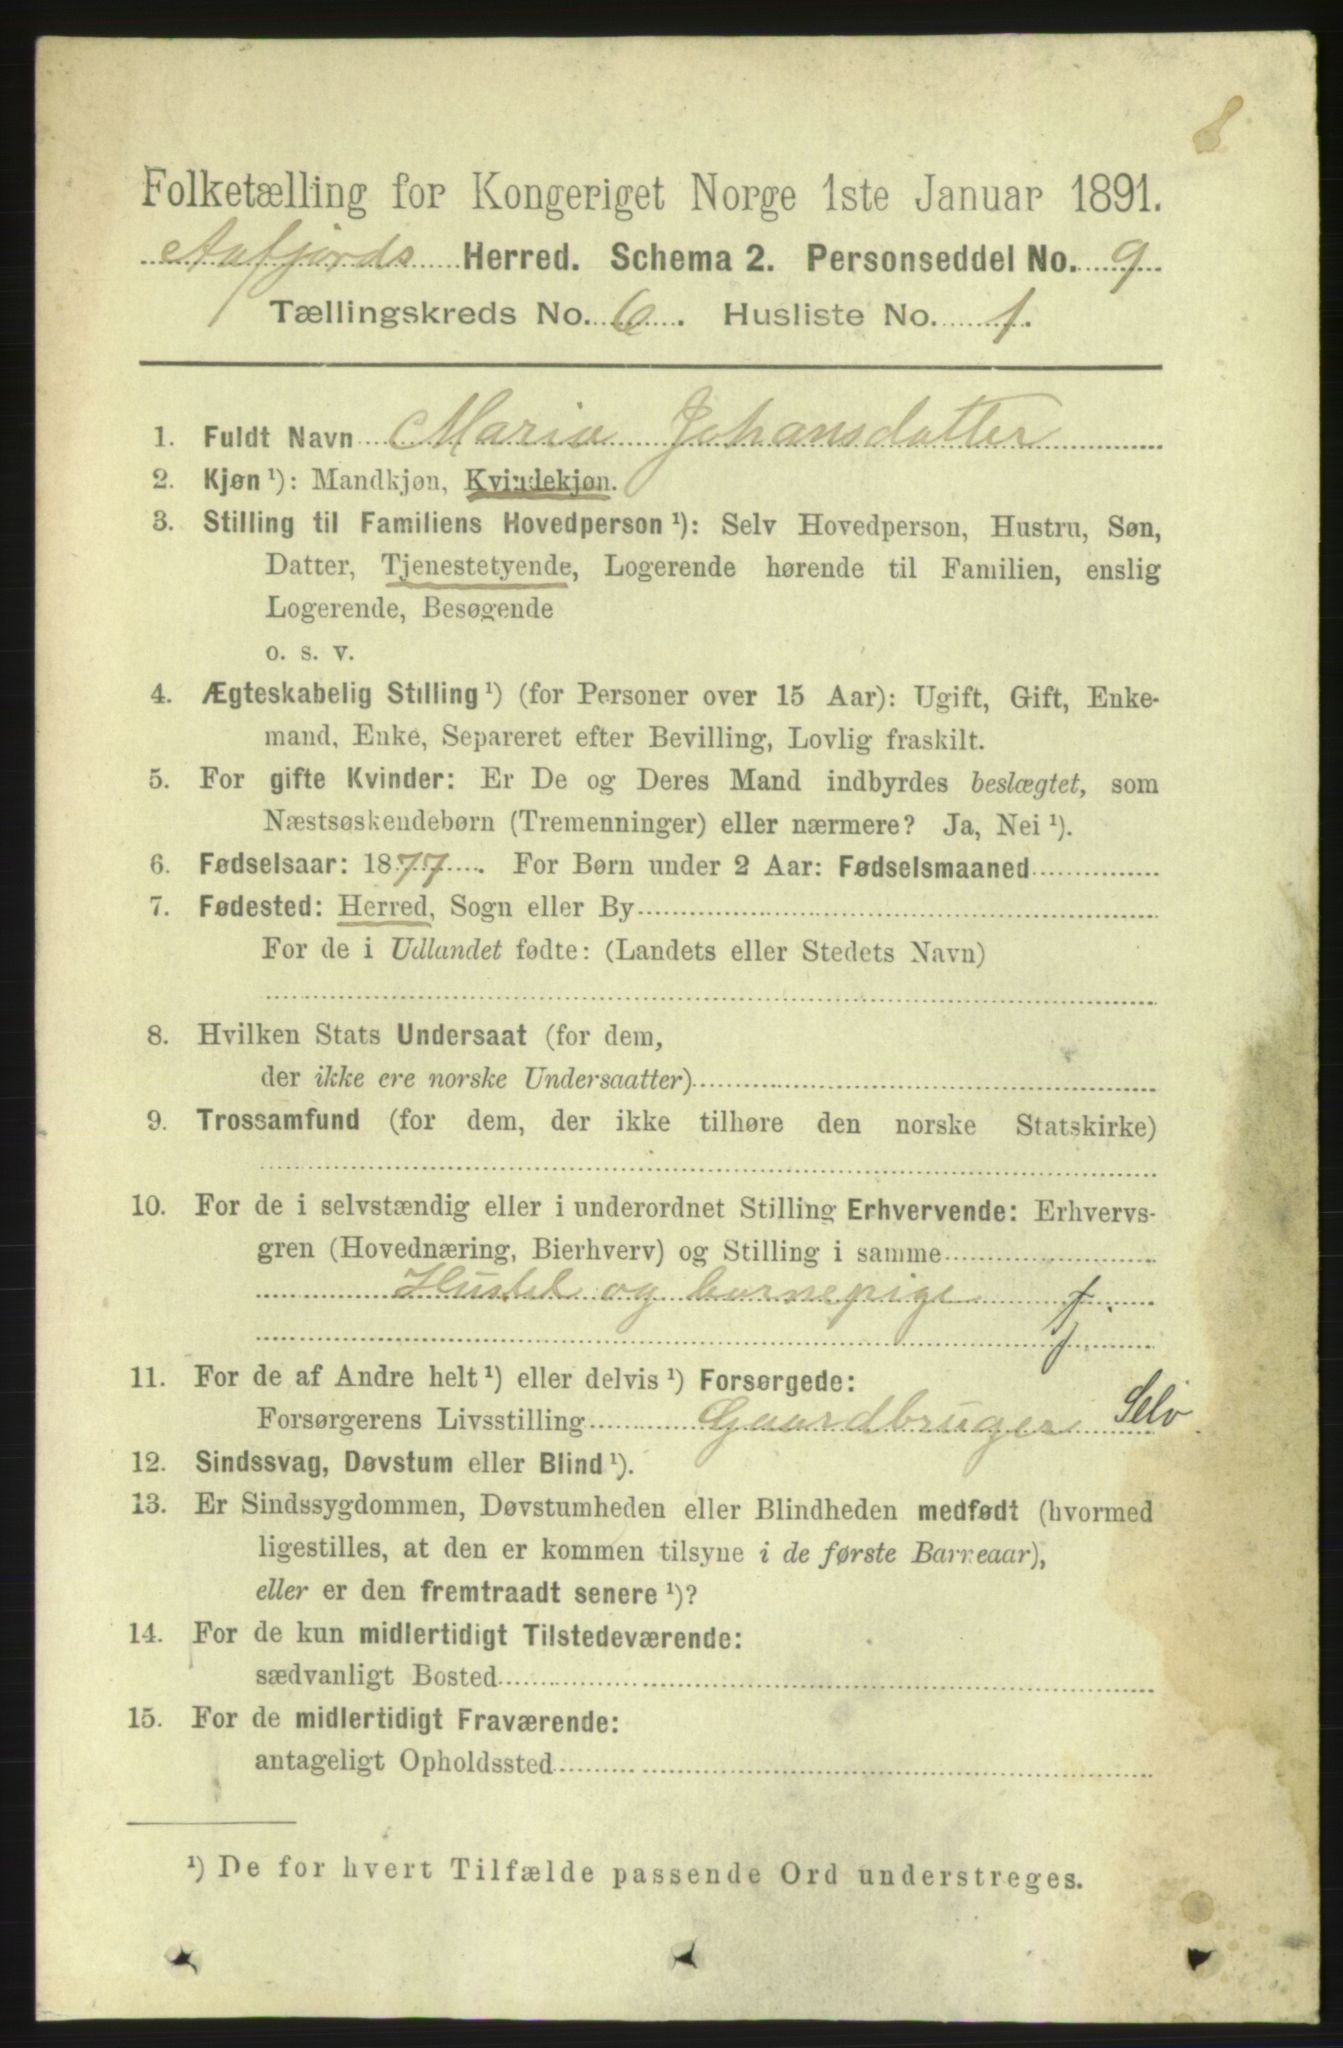 Folketælling for Kongeriget Norge 1ste Januar 1891.
Aafjords Herred. Schema 2. Personseddel No. 9
Tællingskreds No. 6. Husliste No. 1.
1. Fuldt Navn Maria Johansdatter
2. Kjøn ¹): Mandkjøn, Kvindekjøn.
3. Stilling til Familiens Hovedperson ¹): Selv Hovedperson, Hustru, Søn,
Datter, Tjenestetyende, Logerende hørende til Familien, enslig
Logerende, Besøgende
o. s. v.
4. Ægteskabelig Stilling ¹) (for Personer over 15 Aar): Ugift, Gift, Enke-
mand, Enke, Separeret efter Bevilling, Lovlig fraskilt.
5. For gifte Kvinder: Er De og Deres Mand indbyrdes beslægtet, som
Næstsøskendebørn (Tremenninger) eller nærmere? Ja, Nei ¹).
6. Fødselsaar: 1877. For Børn under 2 Aar: Fødselsmaaned
7. Fødested: Herred, Sogn eller By
For de i Udlandet fødte: (Landets eller Stedets Navn)
8. Hvilken Stats Undersaat (for dem,
der ikke ere norske Undersaatter)
9. Trossamfund (for dem, der ikke tilhøre den norske Statskirke)
10. For de i selvstændig eller i underordnet Stilling Erhvervende: Erhvervs-
gren (Hovednæring, Bierhverv) og Stilling i samme
og barnepige
11. For de af Andre helt ¹) eller delvis ¹) Forsørgede:
Forsørgerens Livsstilling Gaardbruger Selv
12. Sindssvag, Døvstum eller Blind ¹).
13. Er Sindssygdommen, Døvstumheden eller Blindheden medfødt (hvormed
ligestilles, at den er kommen tilsyne i de første Barneaar),
eller er den fremtraadt senere ¹)?
14. For de kun midlertidigt Tilstedeværende:
sædvanligt Bosted
15. For de midlertidigt Fraværende:
antageligt Opholdssted
¹) De for hvert Tilfælde passende Ord understreges.